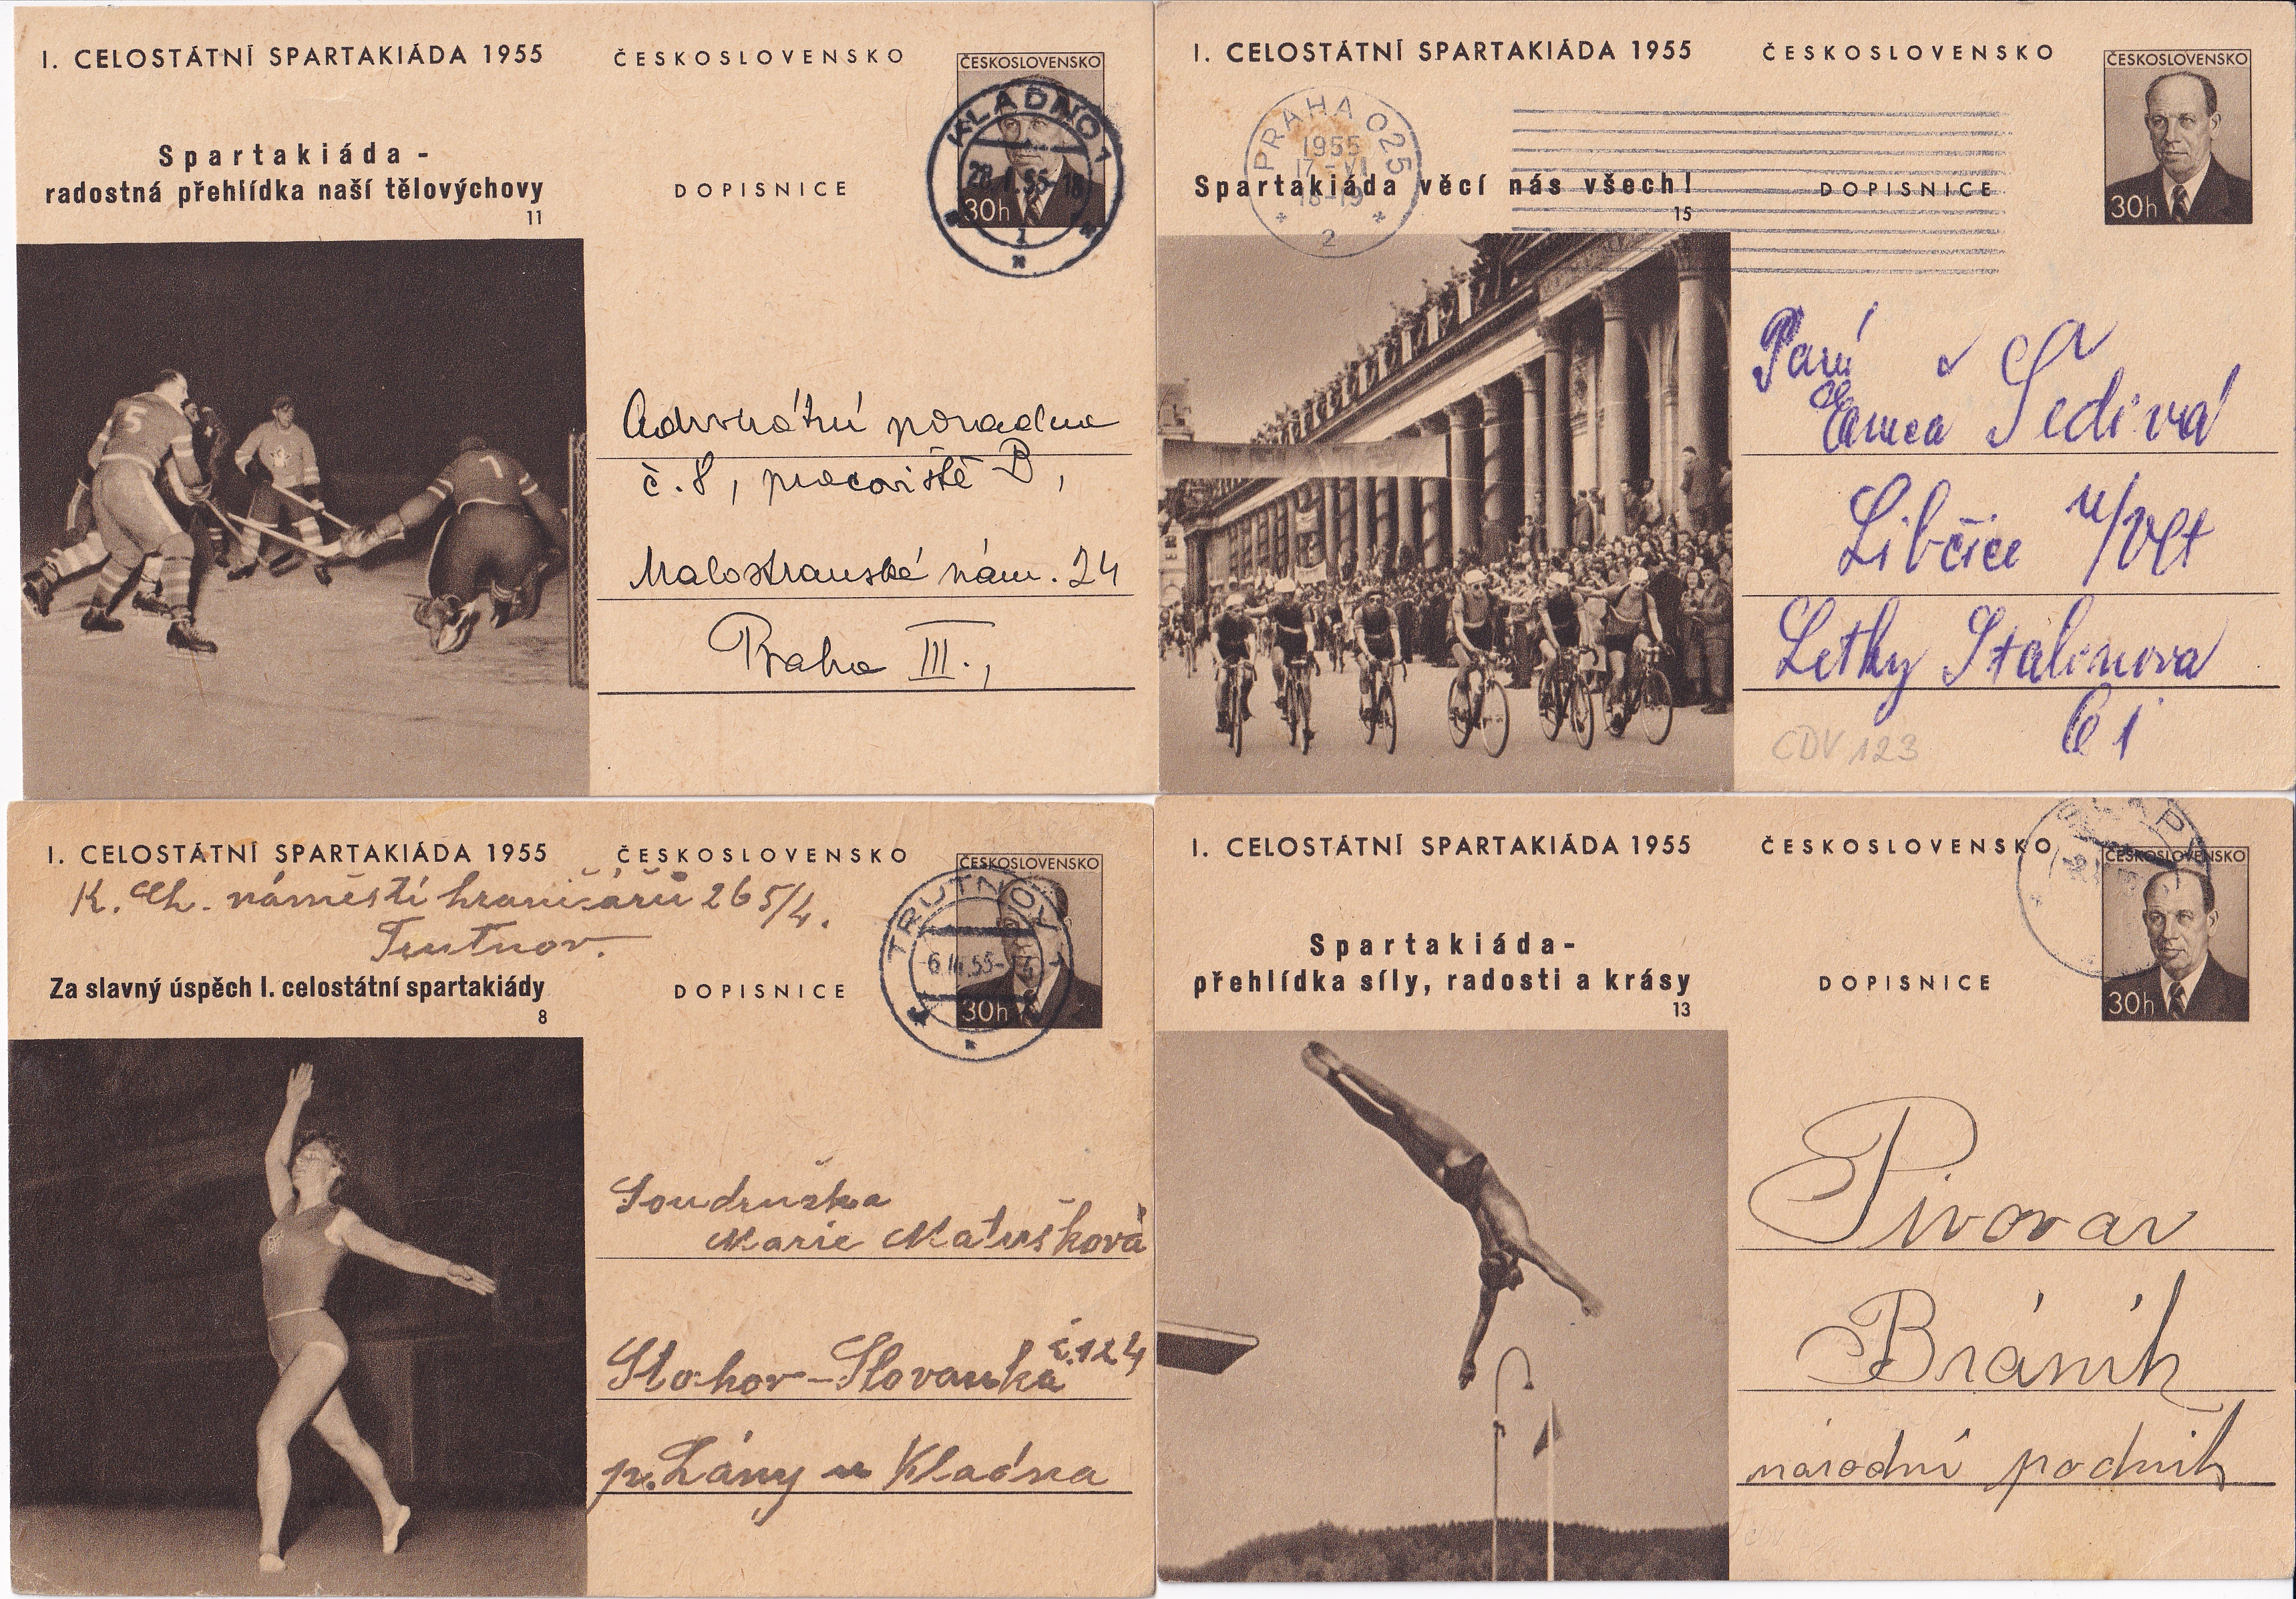 I. CELOSTÁTNÍ SPARTAKIÁDA 1955
ČESKOSLOVENSKO
ČESKOSLOVENSKO
30h
KLADNO 1
Spartakiáda -
radostná přehlídka naší tělovýchovy
11
DOPISNICE
5
1
Advokátní poradna
č. 8, pracoviště B,
Malostranské nám. 24
Praha III.,
I. CELOSTÁTNÍ SPARTAKIÁDA 1955
ČESKOSLOVENSKO
ČESKOSLOVENSKO
30h
PRAHA 025
1955
17.-VI
18-19
2
Spartakiáda věcí nás všech!
15
DOPISNICE
Paní
Šedivá
Libčice n/Vlt
Letky Stalinova
61
CDV 123
I. CELOSTÁTNÍ SPARTAKIÁDA 1955
ČESKOSLOVENSKO
ČESKOSLOVENSKO
30h
TRUTNOV 1
K. Ch. náměstí hraničářů 265/4.
Trutnov.
Za slavný úspěch I. celostátní spartakiády
8
DOPISNICE
Soudružka
Marie Matušková
Stohov-Slovanka č.124
p. Lány u Kladna
I. CELOSTÁTNÍ SPARTAKIÁDA 1955
ČESKOSLOVENSKO
ČESKOSLOVENSKO
30h
Spartakiáda-
přehlídka síly, radosti a krásy
13
DOPISNICE
Pivovar
Bráník
národní podnik